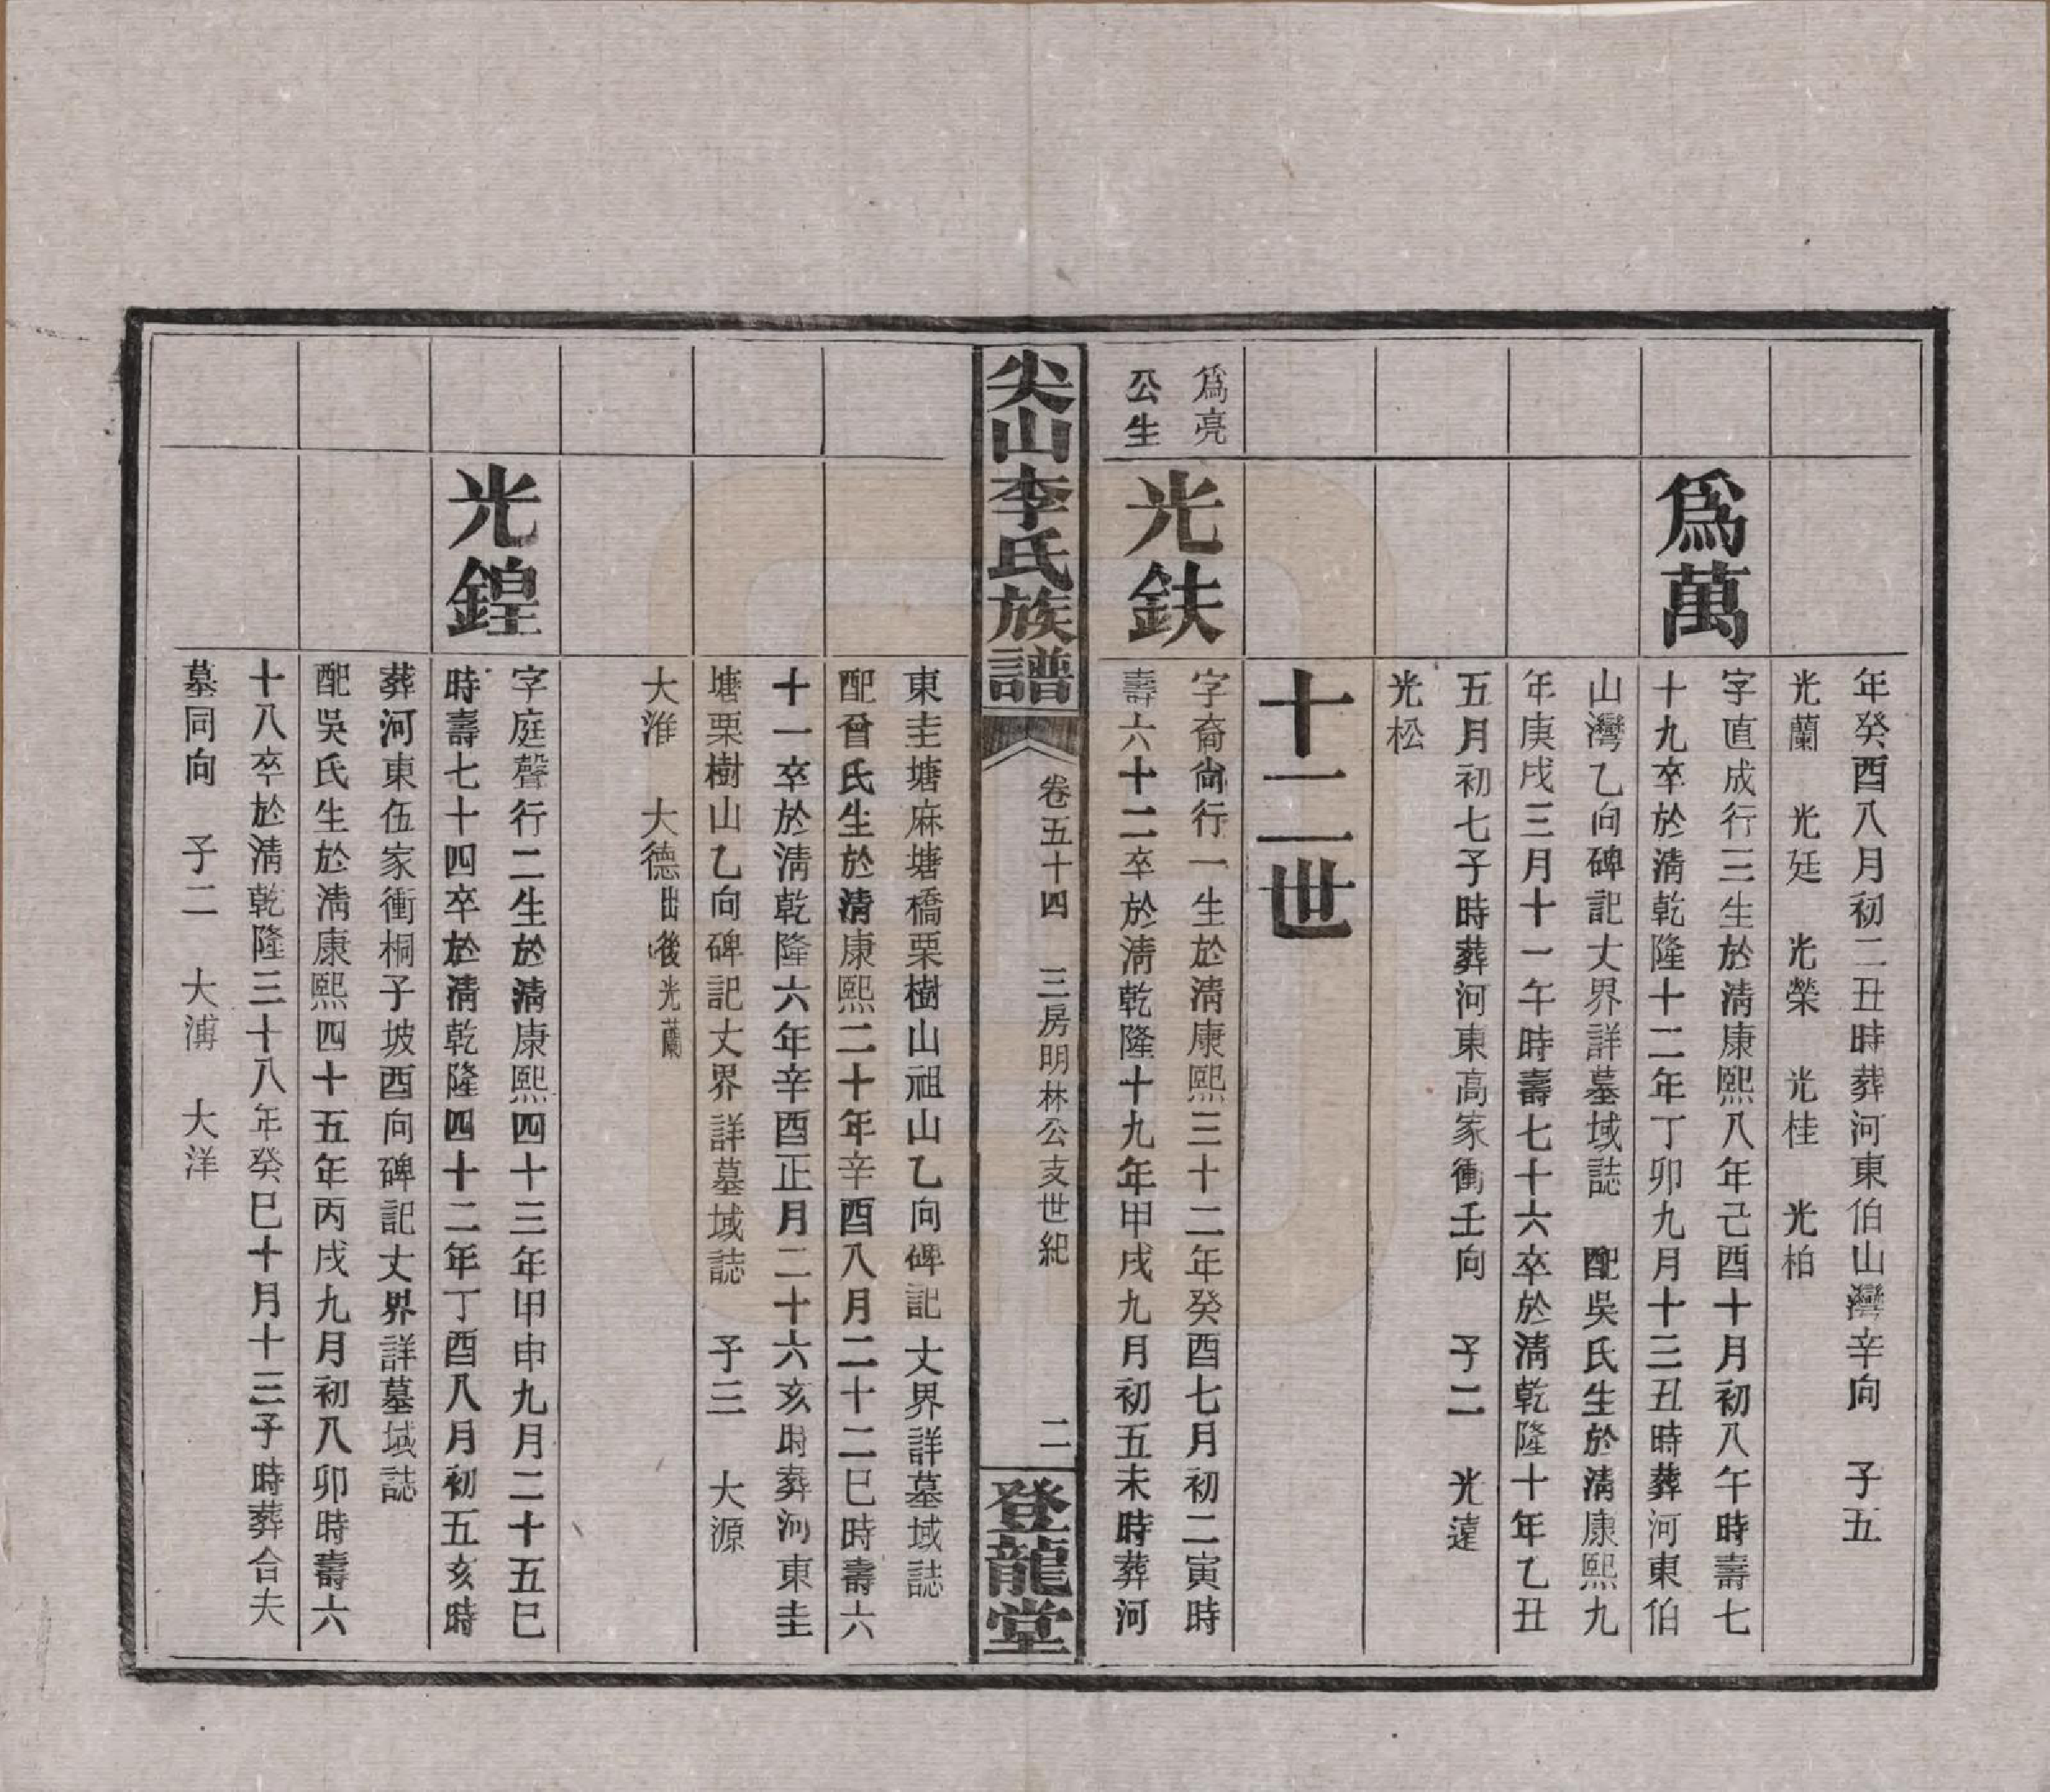 年癸酉八月初二丑時葬河東伯山灣辛向　子五
光蘭　光廷　光榮　光桂　光柏
爲萬
字直成行三生於淸康熙八年己酉十月初八午時壽七
十九卒於淸乾隆十二年丁卯九月十三丑時葬河東伯
山灣乙向碑記丈界詳墓域誌　配吳氏生於淸康熙九
年庚戌三月十一午時壽七十六卒於淸乾隆十年乙丑
五月初七子時葬河東高家衝壬向　子二　光遠
光松
十二世
爲亮
公生
光鈇
字裔尙行一生於淸康熙三十二年癸酉七月初二寅時
壽六十二卒於淸乾隆十九年甲戌九月初五未時葬河
尖山李氏族譜
卷五十四　三房明林公支世紀
二
登龍堂
東圭塘麻塘橋栗樹山祖山乙向碑記丈界詳墓域誌
配曾氏生於淸康熙二十年辛酉八月二十二巳時壽六
十一卒於淸乾隆六年辛酉正月二十六亥時葬河東圭
塘栗樹山乙向碑記丈界詳墓域誌　子三　大源
大淮　大德出後光蘭
光鍠
字庭聲行二生於淸康熙四十三年甲申九月二十五巳
時壽七十四卒於淸乾隆四十二年丁酉八月初五亥時
葬河東伍家衝桐子坡酉向碑記丈界詳墓域誌
配吳氏生於淸康熙四十五年丙戌九月初八卯時壽六
十八卒於淸乾隆三十八年癸巳十月十三子時葬合夫
墓同向　子二　大溥　大洋